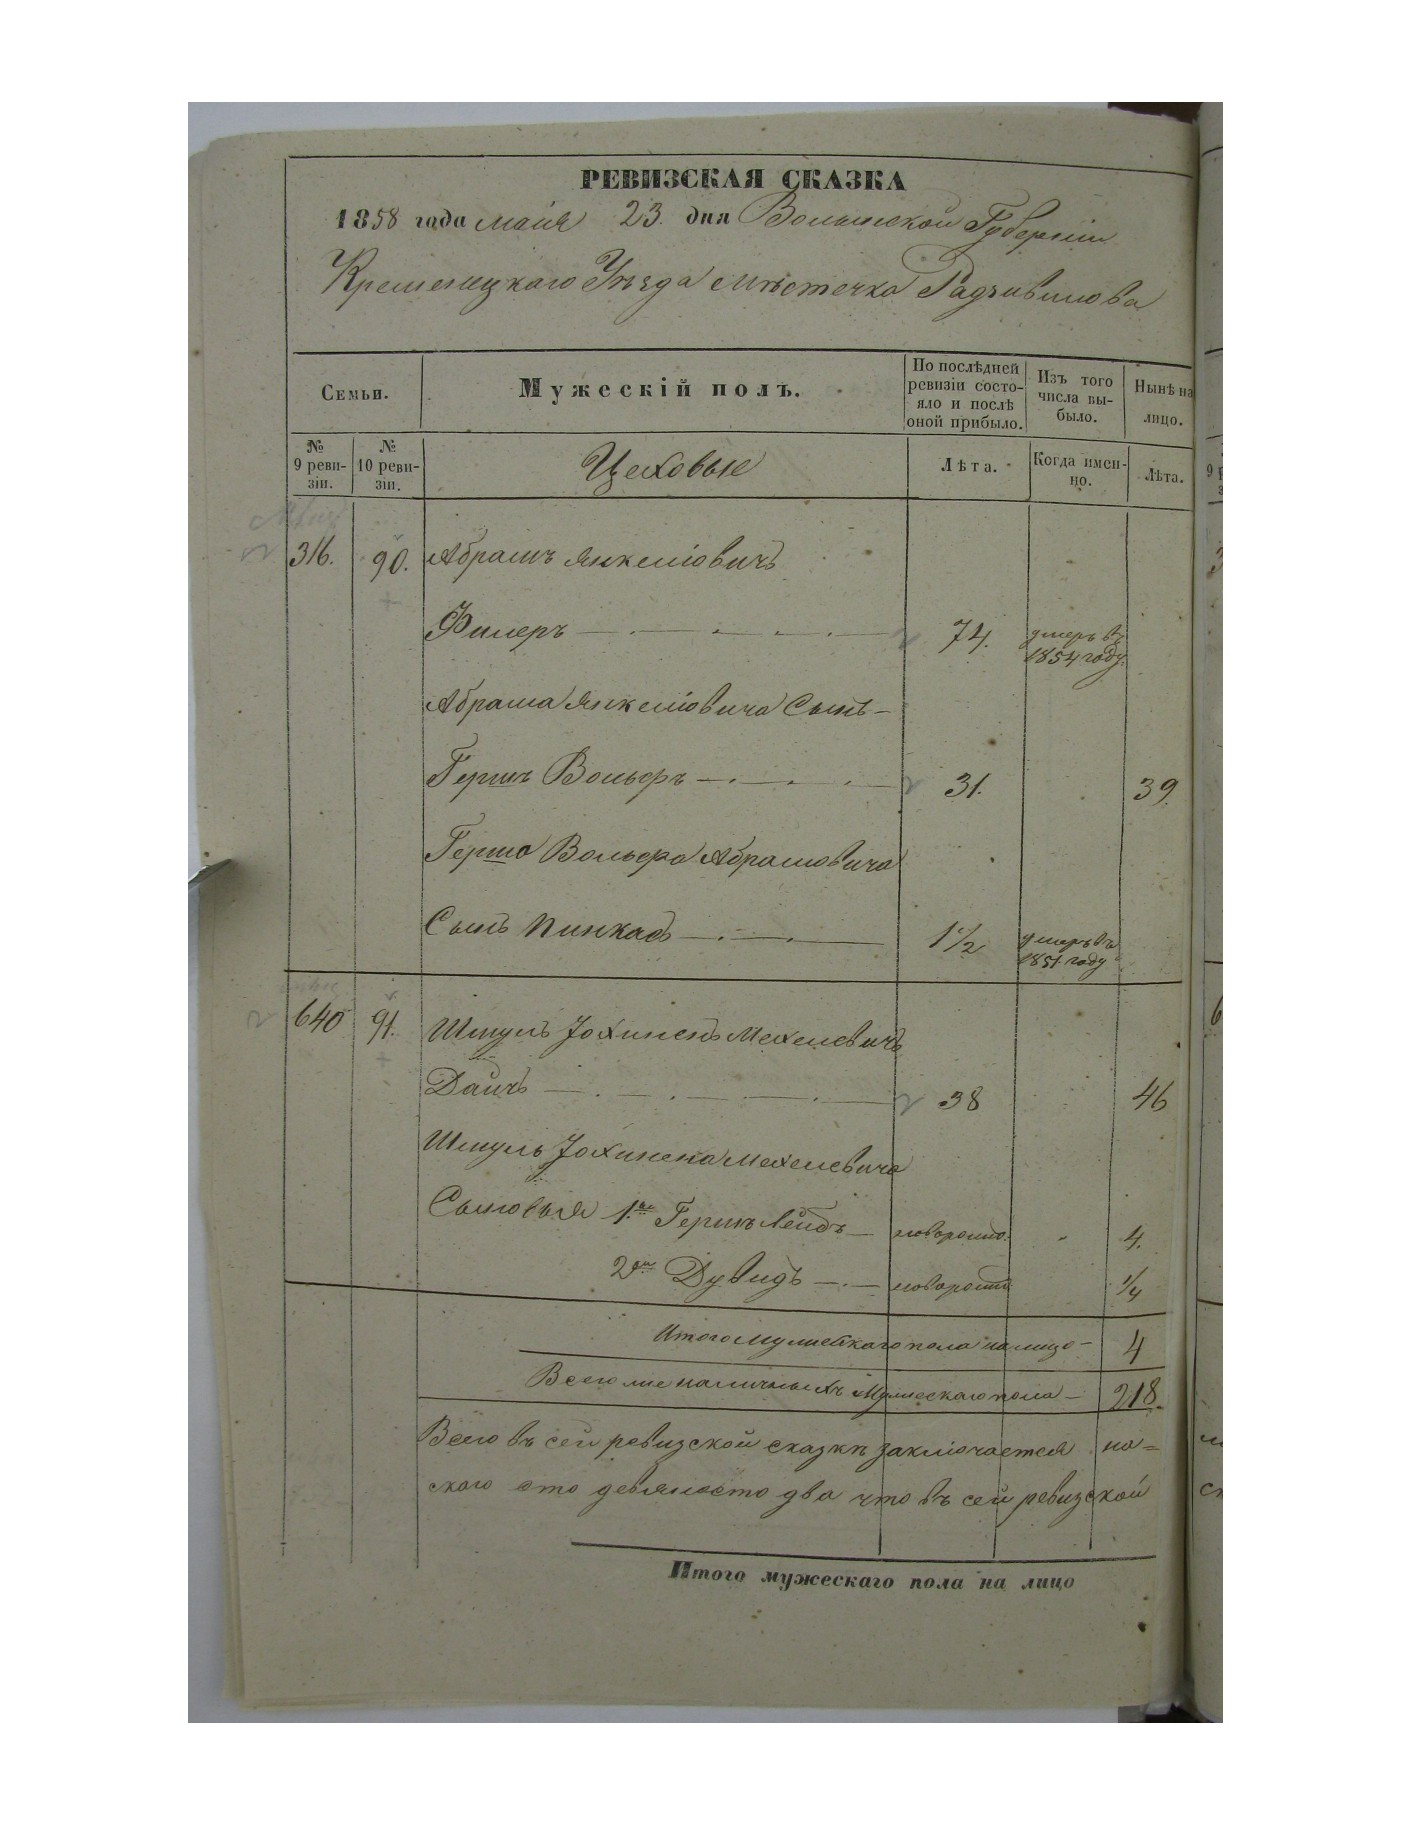 РЕВИЗСКАЯ СКАЗКА
1858 года мaiя 23. дня Волынской Губернiи
Кременецкаго Уѣзда мѣстечка Радзивилова
Семьи.
Мужескiй полъ.
По послѣдней ревизiи состояло и послѣ оной прибыло.
Изъ того числа выбыло.
Нынѣ на лицо.
№ 9 ревизiи.
№ 10 ревизiи.
Цеховые
Лѣта.
Когда именно.
Лѣта.
316. 90. Абрамъ Янкелiовичъ
Филеръ 74. умеръ въ 1854 году.
Абрама Янкелiовича Сынъ
Гершъ Вольфъ 31. 39.
Герша Вольфа Абрамовича
Сынъ Пинкасъ 1 1/2 умеръ въ 1851 году
640 91. Шмуль Мехелевичъ
Дайчъ 38 46
Шмуль Мехелевича
Сыновья 1й Гершъ Лейбъ новорожд. 4.
2ой Дувидъ новорожд 1/4
Итого мужескаго пола на лицо 4
Всего же наличныхъ мужескаго пола 218.
Всего въ сей ревизской сказкѣ заключается на=
скаго сто девяносто два что въ сей ревизской
Итого мужескаго пола на лицо